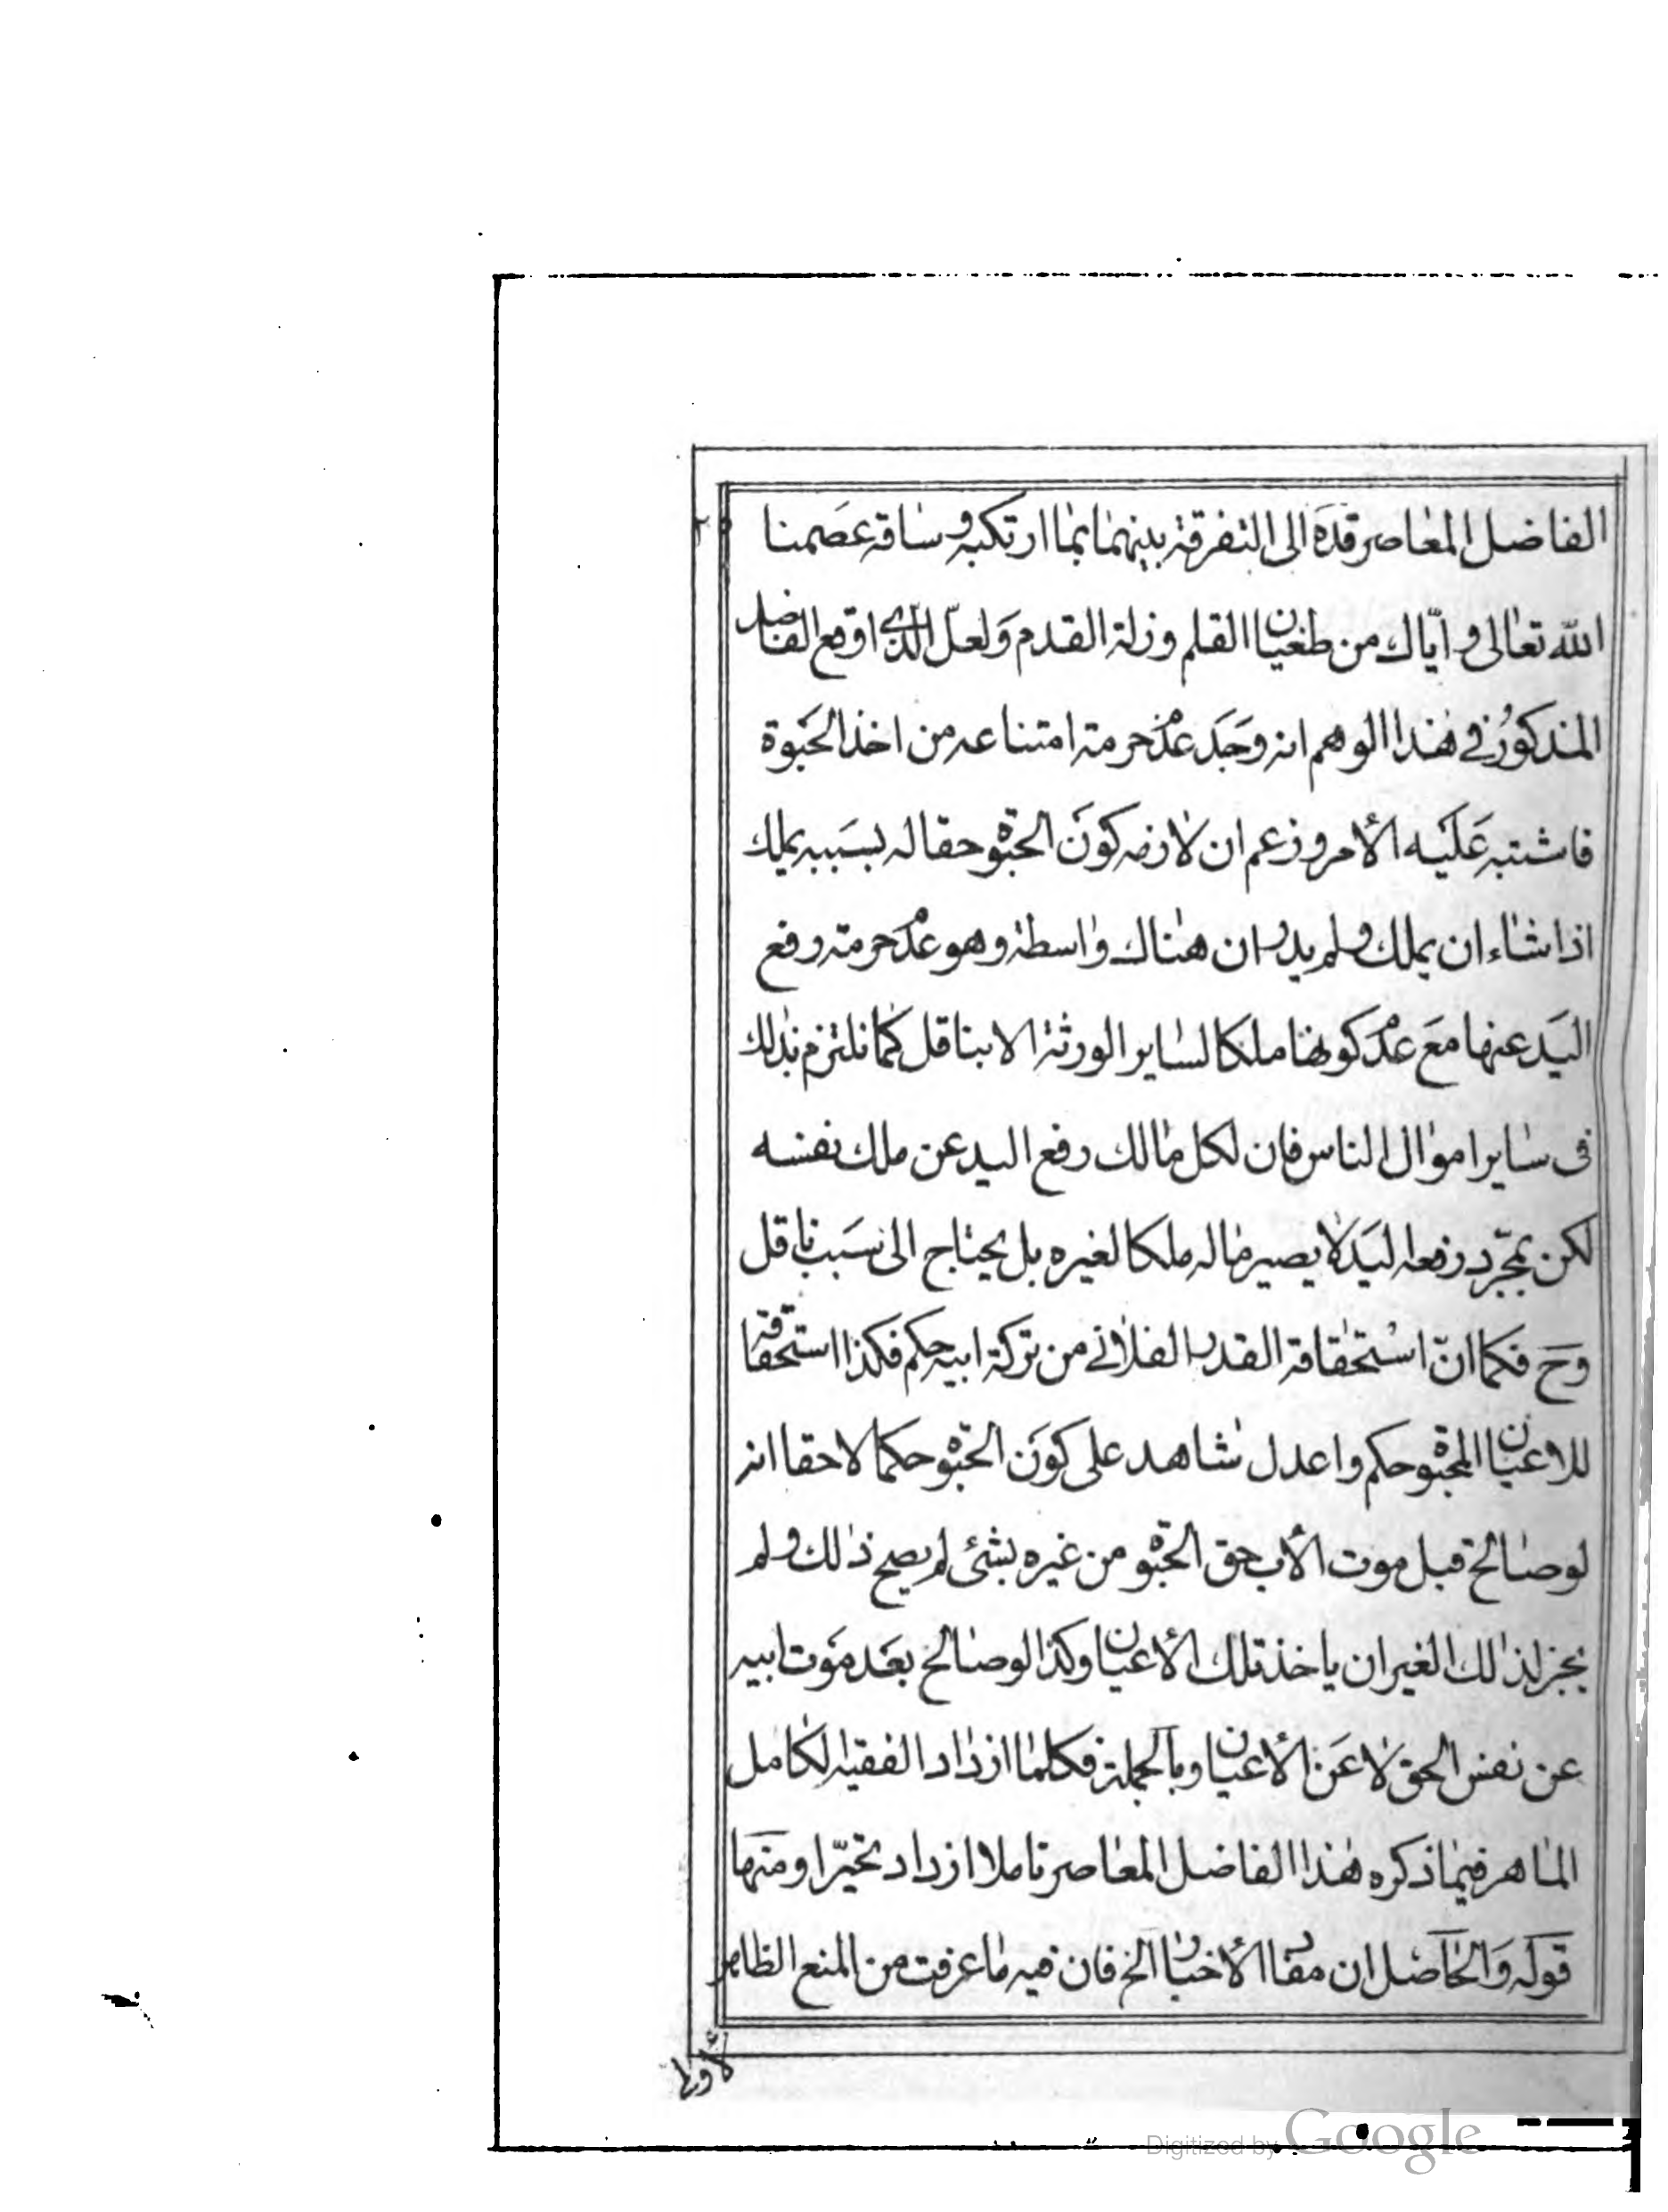 الفاضل المعاصر قده الى التفرقة بينهما بما ارتكبه وساقه عصمنا
الله تعالى واياك من طغيان القلم وزلة القدم ولعل الذى اوقع الفاضل
المذكور في هذا الوهم انه وجد عدم حرمة امتناعه من اخذ الحبوة
فاشتبه عليه الأمر وزعم ان لازمه كون الحبوة حقا له بسببه يملك
اذا شاء ان يملك ولم يدر ان هناك واسطة وهو عدم حرمة رفع
اليد عنها مع عدم كونها ملكا لساير الورثة الا بناقل كما نلتزم بذلك
فى ساير اموال الناس فان لكل مالك رفع اليد عن ملك نفسه
لكن بمجرد رفعه اليد لا يصير ماله ملكا لغيره بل يحتاج الى سبب ناقل
وح فكما ان استحقاقه القدر الفلاني من تركة ابيه حكم فكذا استحقاقه
للاعيان المحبوة حكم واعدل شاهد على كون الحبوة حكما لا حقا انه
لو صالح قبل موت الأب حق الحبوة من غيره بشئ لم يصح ذلك ولم
يجز لذلك الغير ان ياخذ تلك الأعيان وكذا لو صالح بعد موت ابيه
عن نفس الحق لا عن الأعيان وبالجملة فكلما ازداد الفقيه الكامل
الماهر فيما ذكره هذا الفاضل المعاصر تاملا ازداد تحيرا ومنها
قوله والحاصل ان مفاد الأخبار الخ فان فيه ما عرفت من المنع الظاهر
لأولى
Digitized by Google